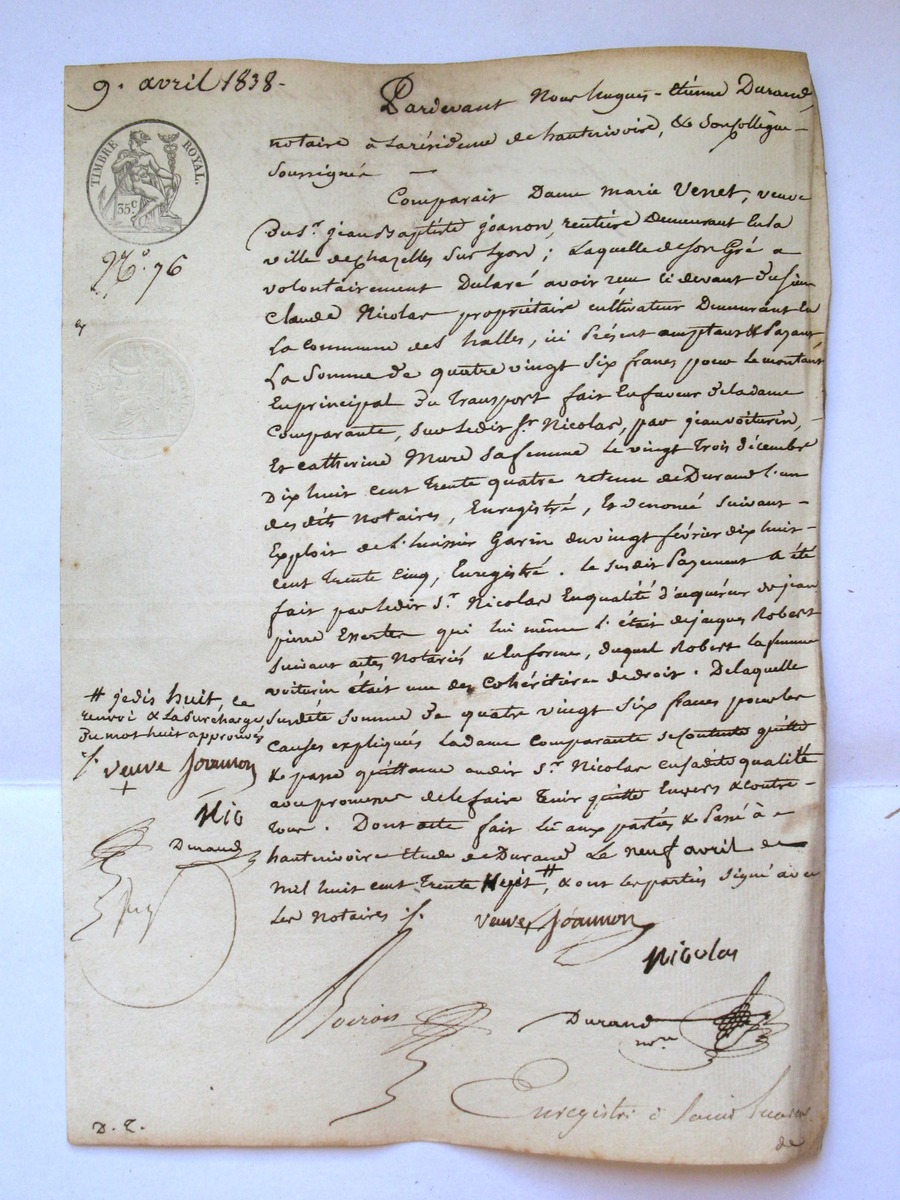 9. avril 1838-
Pardevant Nous hugues-étienne Durand,
notaire à la résidence de hauterivoire, & son Collègue
Soussigné —
TIMBRE ROYAL.
35c
N.o 76
Comparait Dame marie Venet, veuve
Du Sr. jean Baptiste joanon, rentière Demeurant En la
ville de chazelles Sur Lyon; Laquelle de Son Gré a
volontairement Déclaré avoir reçu ci devant du Sieur
Claude Nicolas propriétaire cultivateur Demeurant En
La Commune des halles, ici Présent acceptant & Payant
La Somme de quatre vingt Six francs pour le montant
En principal du Transport fait En faveur de la dame
Comparante, Sur le dit Sr. Nicolas, par jean voiturin,
Et catherine Mure Sa femme Le vingt Trois décembre
Dix huit cent Trente quatre retenu de Durand l'un
des dits Notaires, Enregistré, Et Dénoncé Suivant
Exploit de l'huissier Garin du vingt février dix huit
cent Trente Cinq, Enregistré. Le Susdit Payement a été
fait par le dit Sr. Nicolas En qualité d'acquéreur de jean
pierre qui lui même l'était de jacques Robert
Suivant actes Notariés & En forme, duquel Robert la femme
voiturin était une des Cohéritière de droit. De laquelle
Susdite Somme de quatre vingt Six francs pour les
Causes expliqués La dame Comparante Se Contente quitte
& passe quittance au dit Sr. Nicolas en Sadite qualité
avec promesse de le faire Tenir quitte Envers & Contre
Tous. Dont acte fait lû aux parties & Passé à
hauterivoire étude de Durand Le neuf avril
Mil huit cent Trente #, & ont les parties Signé avec
Les Notaires ./.
# je dis huit, ce
renvoi & La Surcharge
Du mot huit approuvés
./. veuve Joannon
Nic
Durand
veuve Joannon
Nicolas
Durand
nre
Enregistré à Saint
de
D. T.